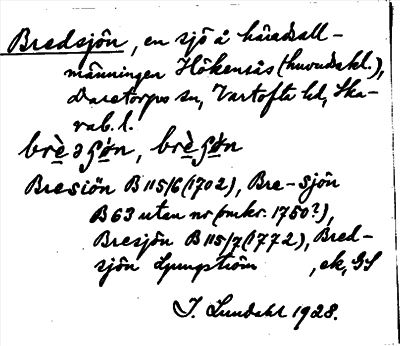 Bredsjön, en sjö å häradsall-
männingen Hökensås (huvudskl.),
Daretorps sn, Vartofta hd, Ska-
rab. l.
brèəʃón, brèʃón
Bresiön B 115/6 (1702), Bre-sjön
B 63 utan nr (omkr. 1750?),
Bresjön B 115/7 (1772), Bred-
sjön Ljungström , ek, GS
I. Lundahl 1928.